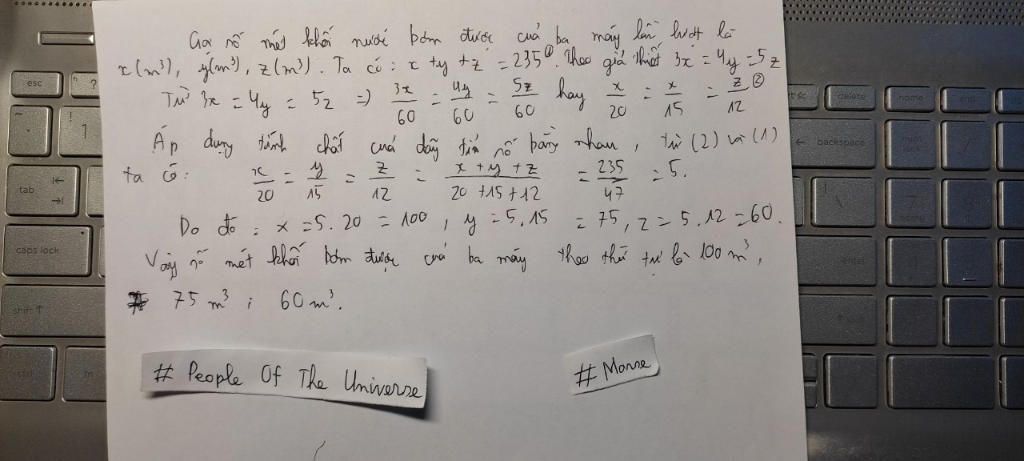 Gọi số mét khối nước bơm được của ba máy lần lượt là
x (m³), y (m³), z (m³). Ta có : x + y + z = 235 ①. Theo giả thiết 3x = 4y = 5z
Từ 3x = 4y = 5z => 3x/60 = 4y/60 = 5z/60 hay x/20 = x/15 = z/12 ②
Áp dụng tính chất của dãy tỉ số bằng nhau, từ (2) và (1)
ta có: x/20 = y/15 = z/12 = x + y + z/20 + 15 + 12 = 235/47 = 5.
Do đó : x = 5.20 = 100, y = 5.15 = 75, z = 5.12 = 60.
Vậy số mét khối bơm được của ba máy theo thứ tự là 100 m³,
75 m³ ; 60 m³.
# People Of The Universe
# Morse
esc
tab
caps lock
shift
ctrl
fn
delete
home
end
backspace